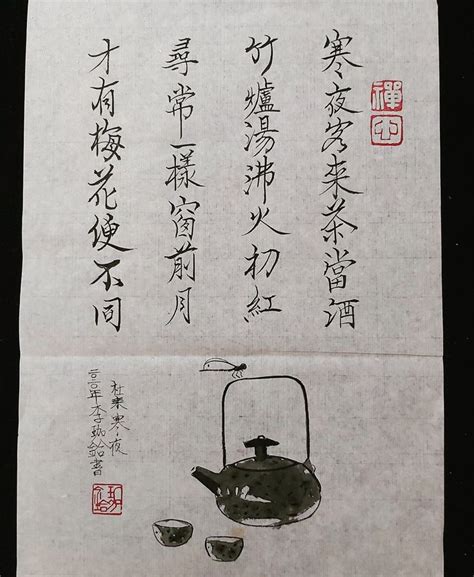 禪心
寒夜客來茶當酒
竹爐湯沸火初紅
尋常一樣窗前月
才有梅花便不同
杜耒寒夜
二〇二〇年李書